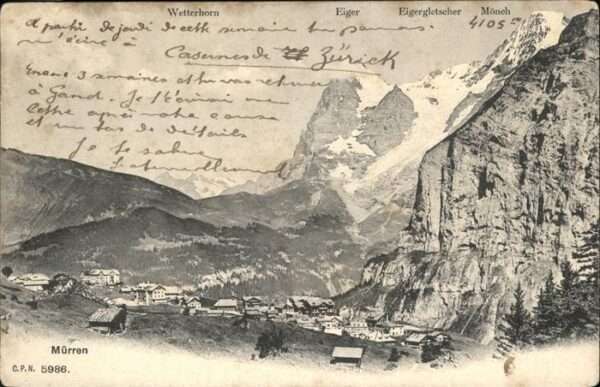 Wetterhorn Eiger Eigergletscher Mönch
4105 m
A partir de jeudi de cette semaine tu pourras
m'écrire à
Casernes de Zürich
Encore 3 semaines et
à Gand. Je t'écrirai une
lettre après notre course
et un tas de détails
Je te salue
Mürren
C.P.N. 5986.